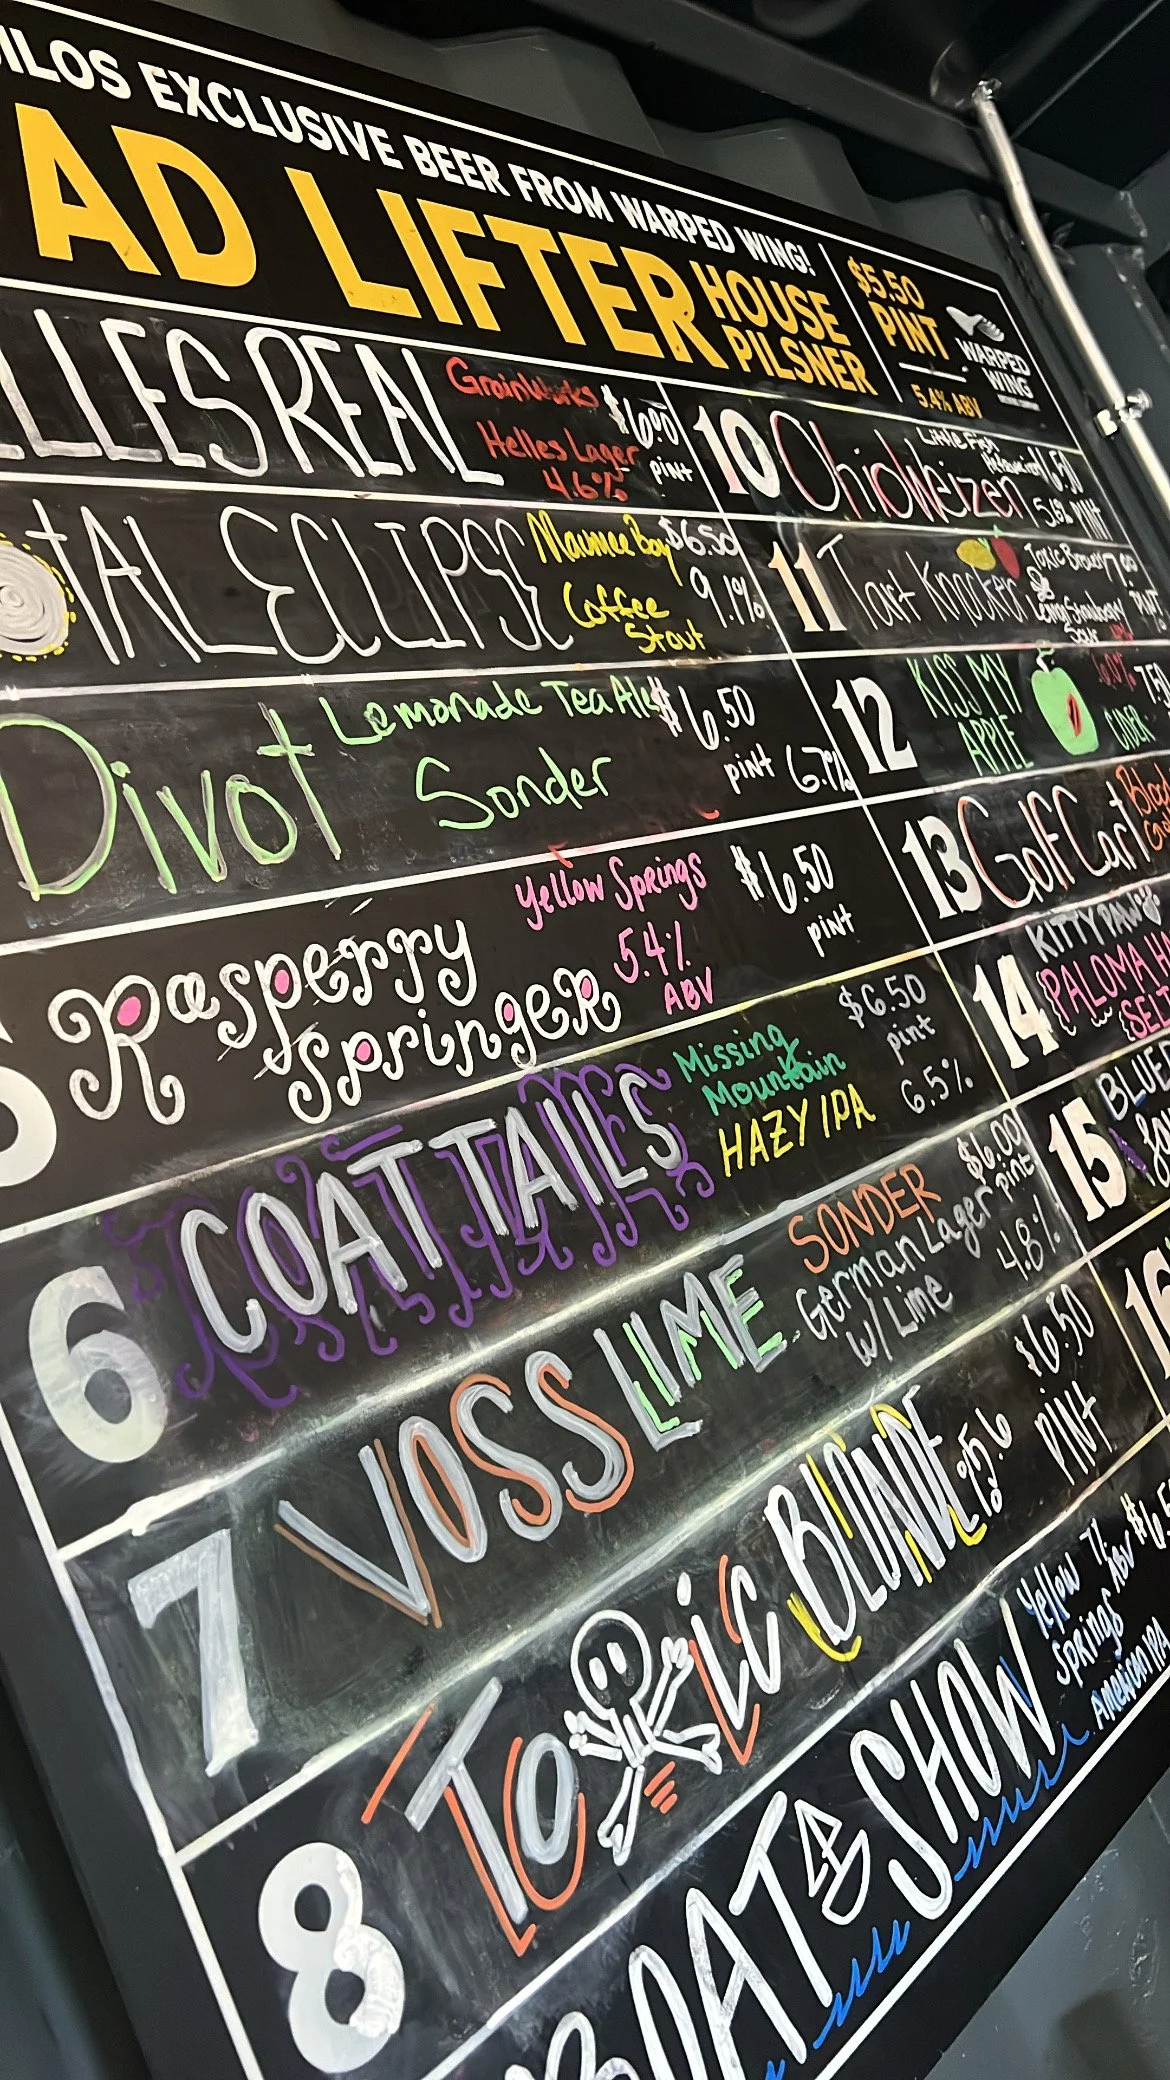 ILOS EXCLUSIVE BEER FROM WARPED WING!
AD LIFTER
HOUSE
PILSNER
$5.50
PINT
5.4% ABV
WARPED
WING
LLES REAL
GrainWorks
Helles Lager
4.6%
$6.00
pint
TAL ECLIPSE
Maumee Bay
Coffee
Stout
$6.50
9.1%
Divot
Lemonade Tea Ale
Sonder
$6.50
pint 6.7%
Rasperry
Springer
Yellow Springs
5.4%
ABV
$6.50
pint
6
COATTAILS
Missing
Mountain
HAZY IPA
$6.50
pint
6.5%
7
VOSS LIME
SONDER
German Lager
w/ Lime
$6.00
pint
4.8%
8
TOXIC BLONDE
5.6
$6.50
PINT
BOAT SHOW
Yellow
Springs
American IPA
ABV
10
Ohioweizen
Little Fish
6.50
PINT
11
Tart Knocker
Toxic Brew
Sour
7.00
12
KISS MY
APPLE
6.0%
CIDER
7.50
13
Golf Cart
14
KITTY PAW
PALOMA H
SELT
15
BLUE
16